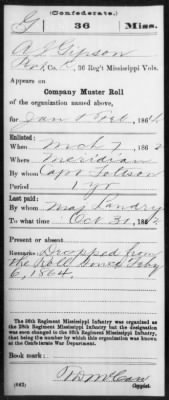 (Confederate.)
G 36 Miss.
A J Gipson
Pvt, Co. K, 36 Reg't Mississippi Vols.
Appears on
Company Muster Roll
of the organization named above,
for Jan & Feb, 1864.
Enlisted:
When Mch 7, 1862
Where Meridian
By whom Capt Tolson
Period 1 yr
Last paid:
By whom Maj Landry
To what time Oct 31, 186
Present or absent
Remarks: Dropped from
the Roll since Feby
6, 1864.
The 36th Regiment Mississippi Infantry was organized as
the 28th Regiment Mississippi Infantry but the designation
was soon changed to the 36th Regiment Mississippi Infantry,
that being the number by which this organization was known
at the Confederate War Department.
Book mark:
(642) Copyist.